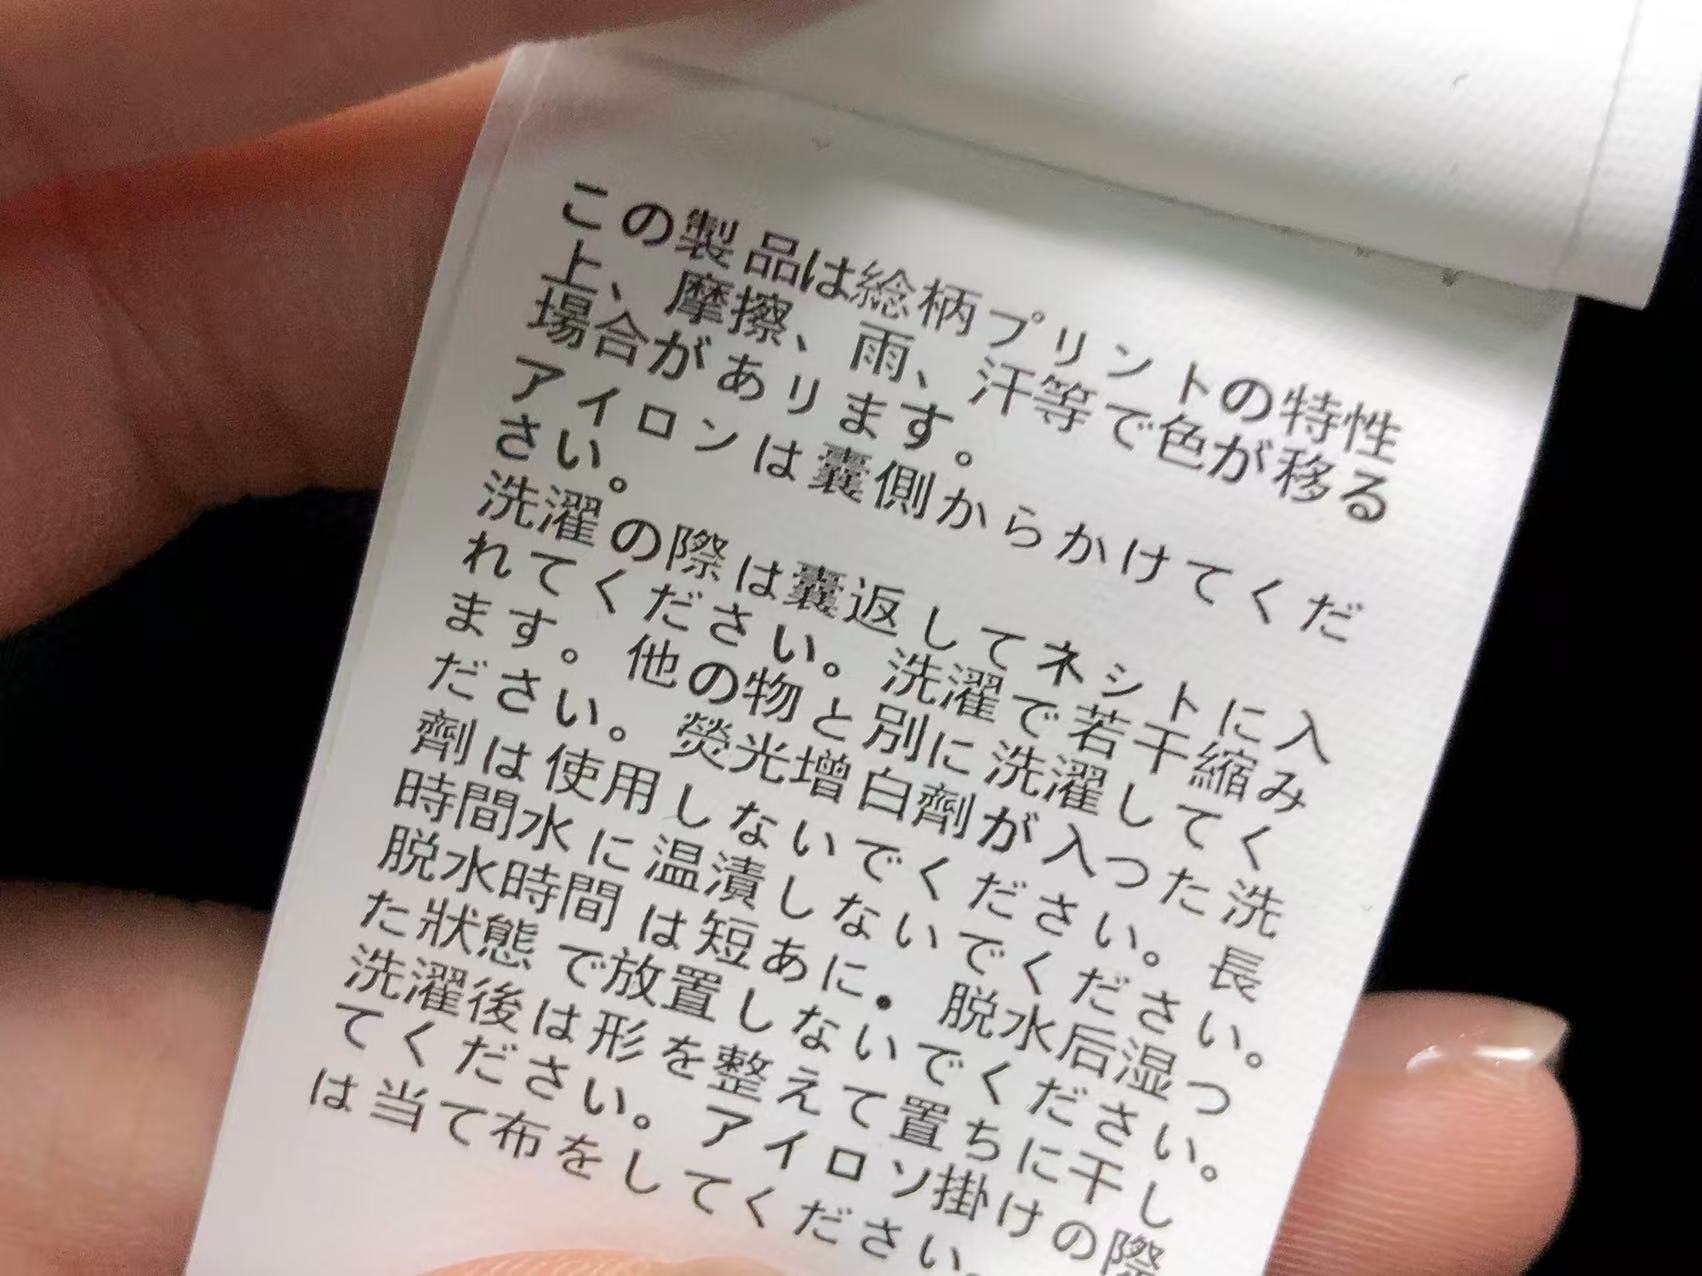 この製品は総柄プリントの特性
上、摩擦、雨、汗等で色が移る
場合があります。
アイロンは囊側からかけてくだ
さい。
洗濯の際は囊返してネシトに入
れてください。洗濯で若干縮み
ます。他の物と別に洗濯してく
ださい。熒光增白劑が入つた洗
劑は使用しないでください。長
時間水に温漬しないでください。
脱水時間は短あに．脱水后湿つ
た狀態で放置しないでください。
洗濯後は形を整えて置ちに干し
てください。アイロン掛けの際
は当て布をしてください。